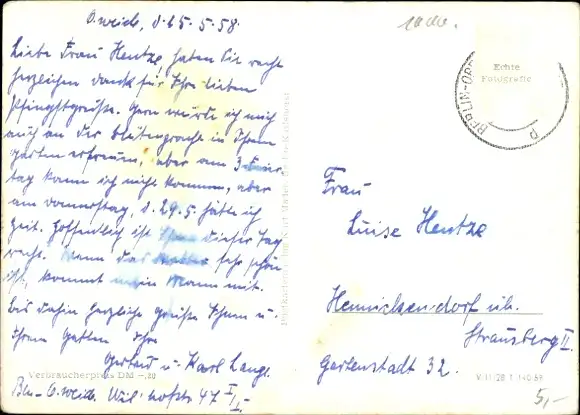 O.weide, d. 25.5.58.
Liebe Frau Hentze, haben Sie recht
herzlichen Dank für Ihre lieben
Pfingstgrüße. Gern würde ich mich
auch an der Blütenpracht in Ihrem
Garten erfreuen, aber am 3. Feier
tag kann ich nicht kommen, aber
am Donnerstag, d. 29.5. hätte ich
Zeit. Hoffentlich ist Ihnen dieser Tag
recht. Wenn das Wetter sehr schön
ist, kommt mein Mann mit.
Bis dahin herzliche Grüße Ihnen u.
Ihrem Gatten Ihre
Gertrud u. Karl Lange
Verbraucherpreis DM -,20
Bln.-O.weide, Wil. hofstr. 47
10 Uhr.
Echte
Fotografie
BERLIN-OBE
Frau
Luise Hentze
Hennickendorf üb.
Strausberg II
Gartenstadt 32.
5,-